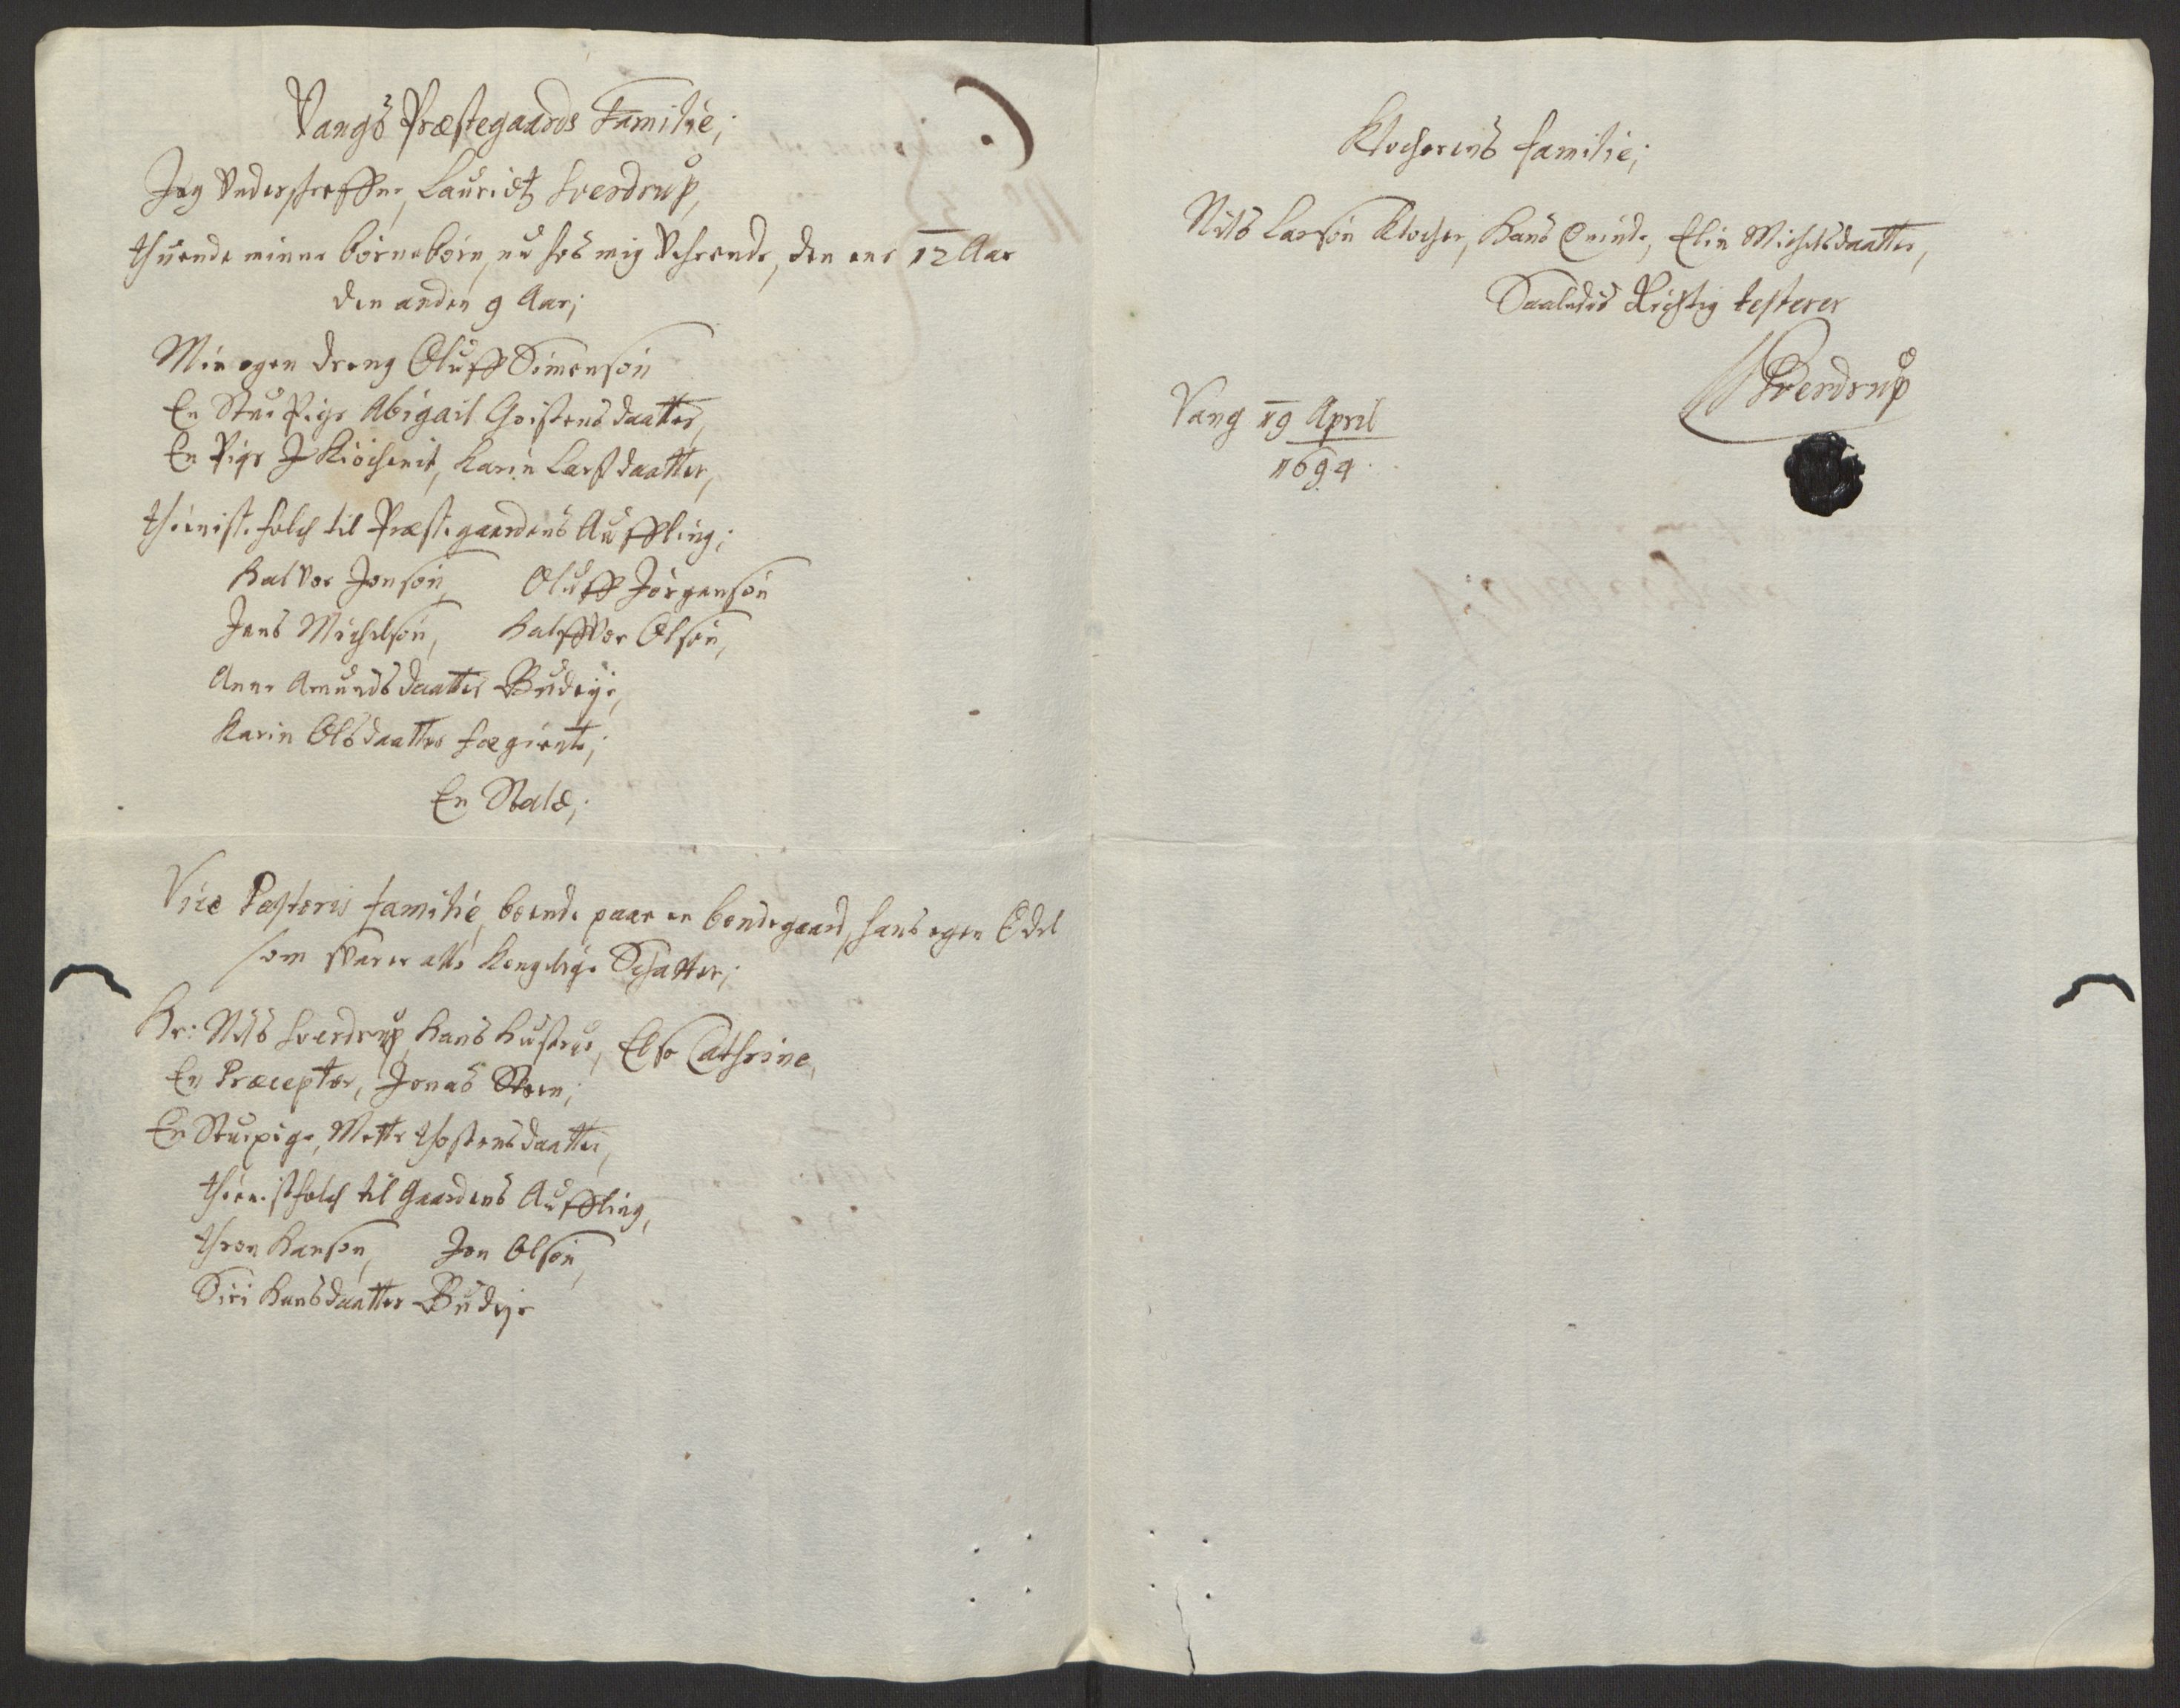 Vangs Præstegaards Familie;
Jeg Underschreffne, Lauridtz Sverdrup,
thuende minne börnebörn, nu hos mig Verende, den ene 12 Aar
den anden 9 Aar;
Min egen dreng Oluff Simensön
En Stue Pige Abigail Goistensdaatter,
En Pige I Kiöchenit, Karin Larsdaatter,
thieniste folch til Præstegaardens Auffling;
Halvor Jonsön, Oluff Jörgensön
Jens Michelsön, Halffvor Olsön,
Anne Amundsdaatter Budeye,
Karin Olsdaatter fægiente;
En Kald;
Vice Pastoris familie, boende paa en bondegaard, hans egen Odel
som svarer alle Kongelige Schatter;
Hr: Nils Sverdrup, Hans hustrue, Else Cathrine,
En Præceptor, Jonas Steen;
En Stuepige, Mette thostensdaatter,
thienistfolch til Gaardens Auffling,
thron Hansön, Jon Olsön,
Siri Hansdaatter Budeye
Klocherens familie;
Nils Larsön Klocher, Hans Qvinde, Elin Michelsdaatter,
Saaledis Richtig testerer
LSverdrup
Vang 19 April
1694